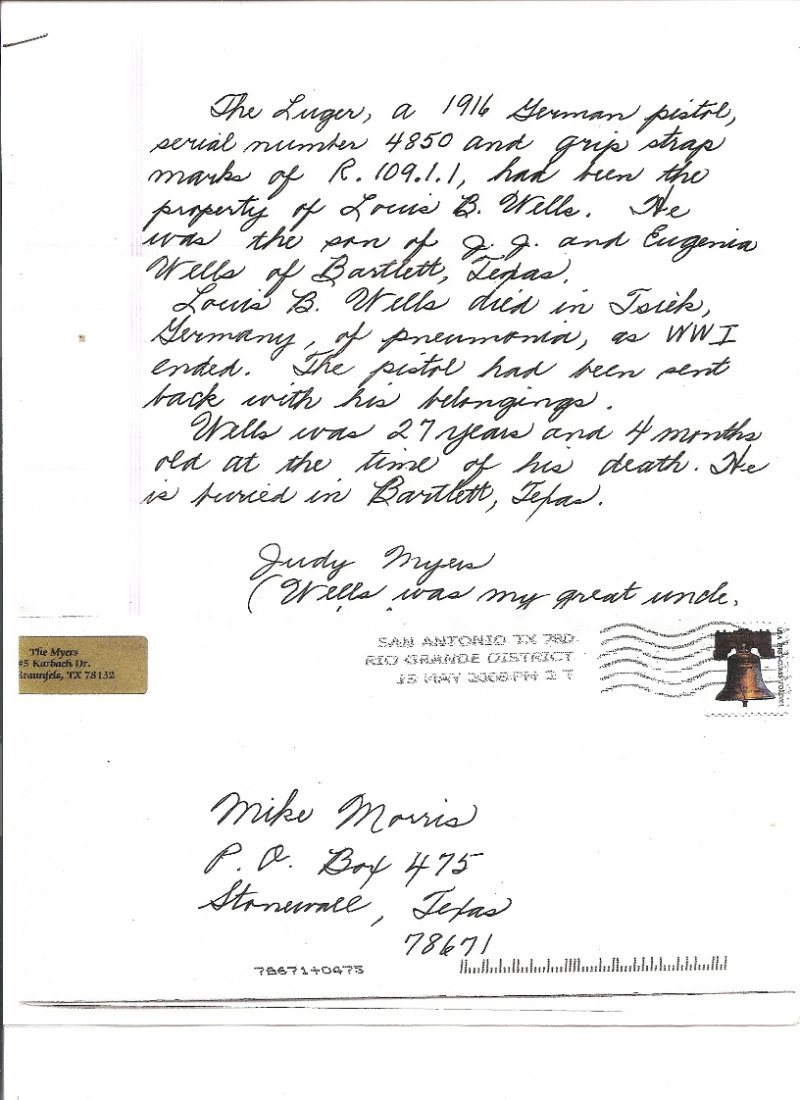 The Luger, a 1916 German pistol,
serial number 4850 and grip strap
marks of R. 109.1.1, had been the
property of Louis B. Wells. He
was the son of J. J. and Eugenia
Wells of Bartlett, Texas.
Louis B. Wells died in Tsiek,
Germany, of pneumonia, as WWI
ended. The pistol had been sent
back with his belongings.
Wells was 27 years and 4 months
old at the time of his death. He
is buried in Bartlett, Texas.
Judy Myers
(Wells was my great uncle.
The Myers
#5 Karbach Dr.
Braunfels, TX 78132
SAN ANTONIO TX 780
RIO GRANDE DISTRICT
15 MAY 2008 PM 1 T
Mike Morris
P. O. Box 475
Stonewall, Texas
78671
78671+0475